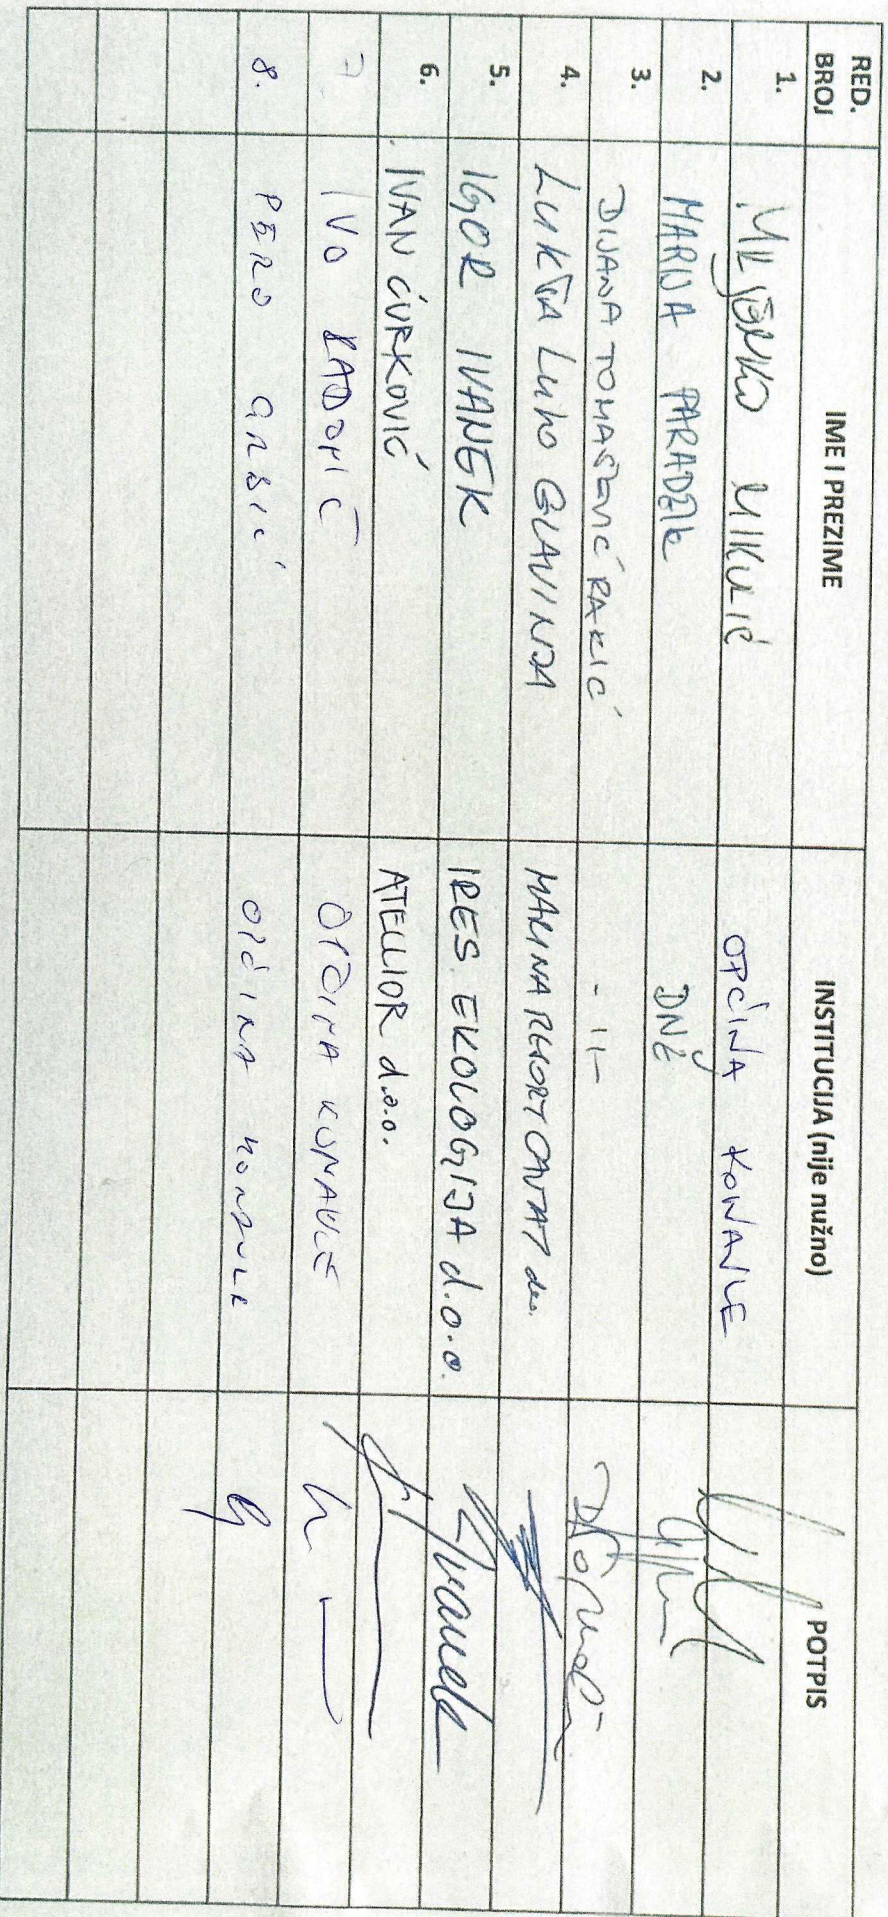 RED. BROJ IME I PREZIME INSTITUCIJA (nije nužno) POTPIS
1. MIKULIĆ OPĆINA KONAVLE
2. MARIJA PARADŽIK DNŽ
3. DIJANA TOMAŠEVIĆ RAKIĆ - 11 -
4. LUKŠA LUKO GLAVINJA MARINA RESORT CAVTAT doo.
5. IGOR IVANEK IRES EKOLOGIJA d.o.o. Ivanek
6. IVAN ĆURKOVIĆ ATELLIOR d.o.o.
7 IVO RADONIĆ OPĆINA KONAVLE
8. PERO OPĆINA KONAVLE